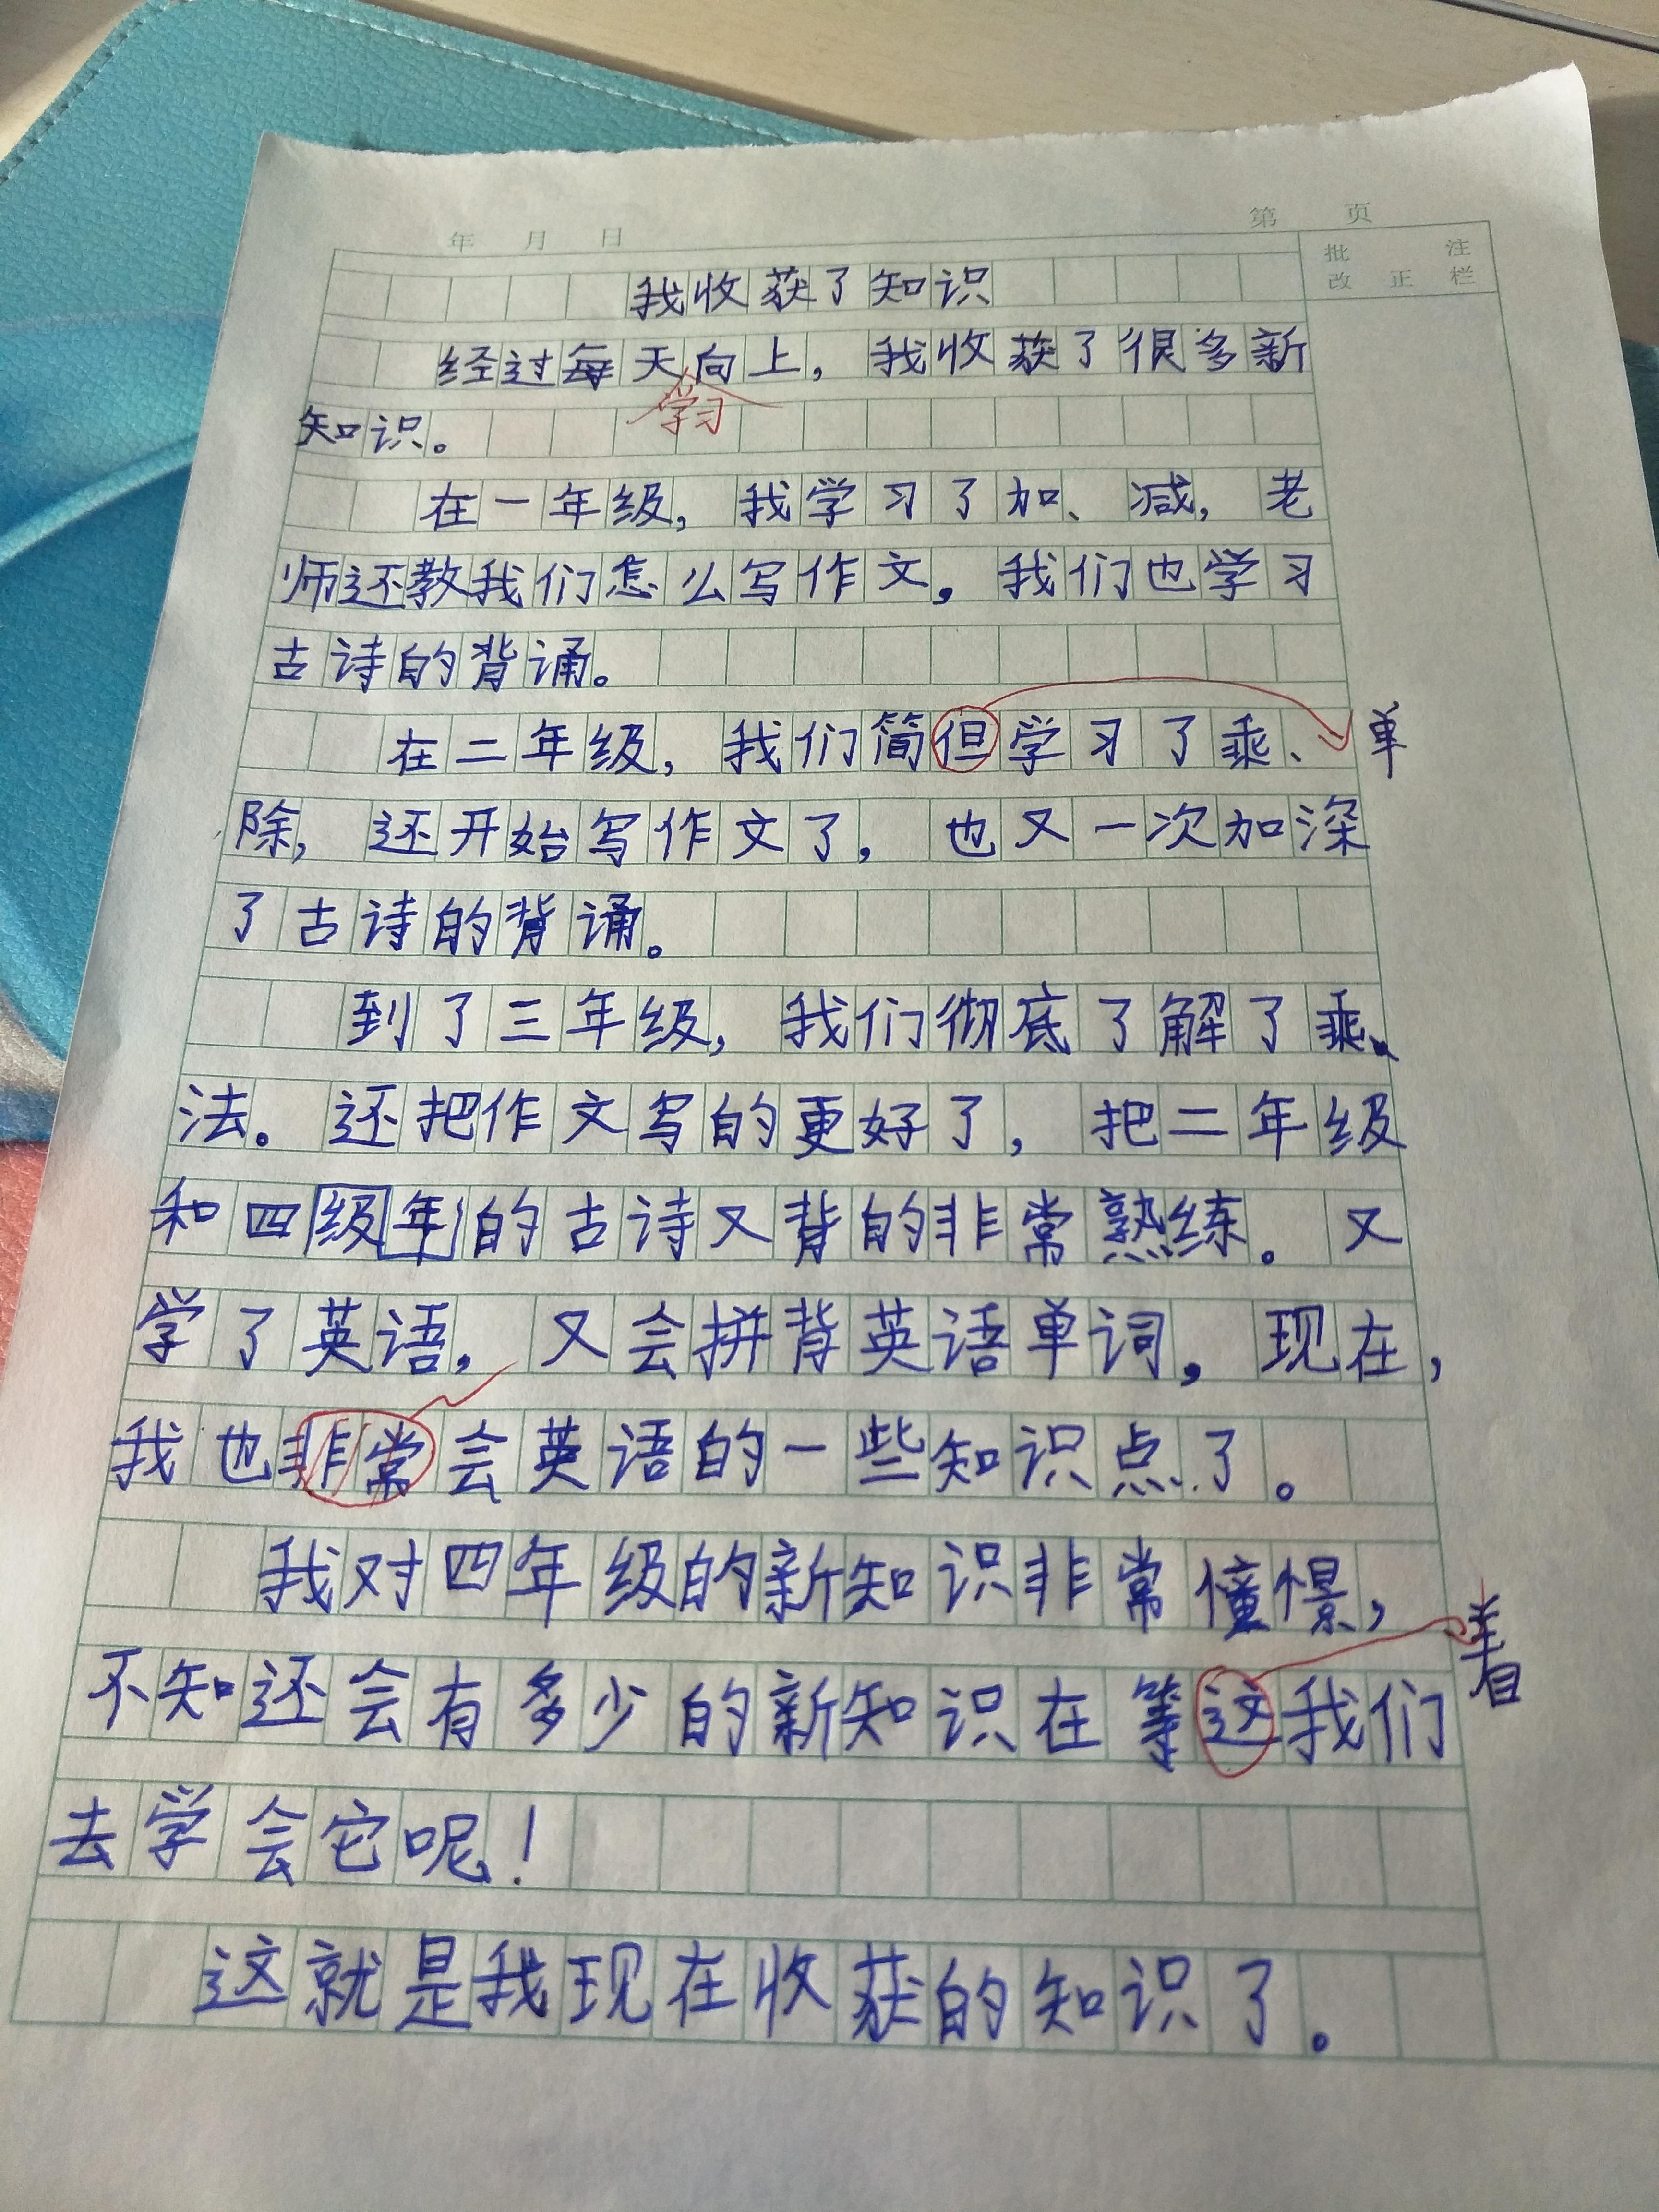 年 月 日 第 页
批 注
改 正 栏
我收获了知识
经过每天向上，我收获了很多新
学习
知识。
在一年级，我学习了加、减，老
师还教我们怎么写作文。我们也学习
古诗的背诵。
在二年级，我们简但学习了乘、 单
除，还开始写作文了，也又一次加深
了古诗的背诵。
到了三年级，我们彻底了解了乘、
法。还把作文写的更好了，把二年级
和四级年的古诗又背的非常熟练。又
学了英语，又会拼背英语单词。现在，
我也非常会英语的一些知识点了。
我对四年级的新知识非常憧憬，
不知还会有多少的新知识在等这我们 着
去学会它呢！
这就是我现在收获的知识了。